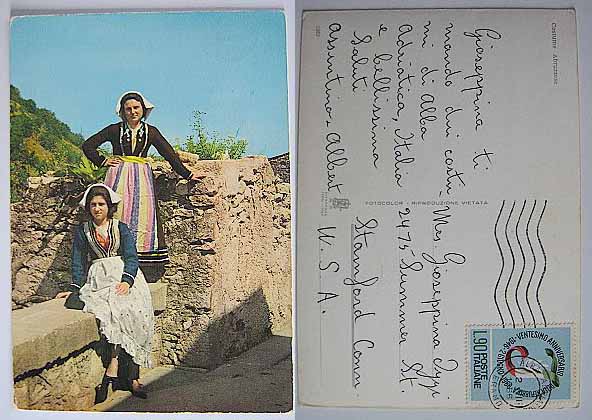 Costume Abruzzese
Giuseppina ti
mando dui costu-
mi di Alba
Adriatica, Italia
e bellissima
Saluti
assuntina Albert
FOTOCOLOR - RIPRODUZIONE VIETATA
Mrs. Gioseppina
2475 Summer St.
Stamford Conn.
U. S. A.
L.90 POSTE ITALIANE
VENTESIMO ANNIVERSARIO